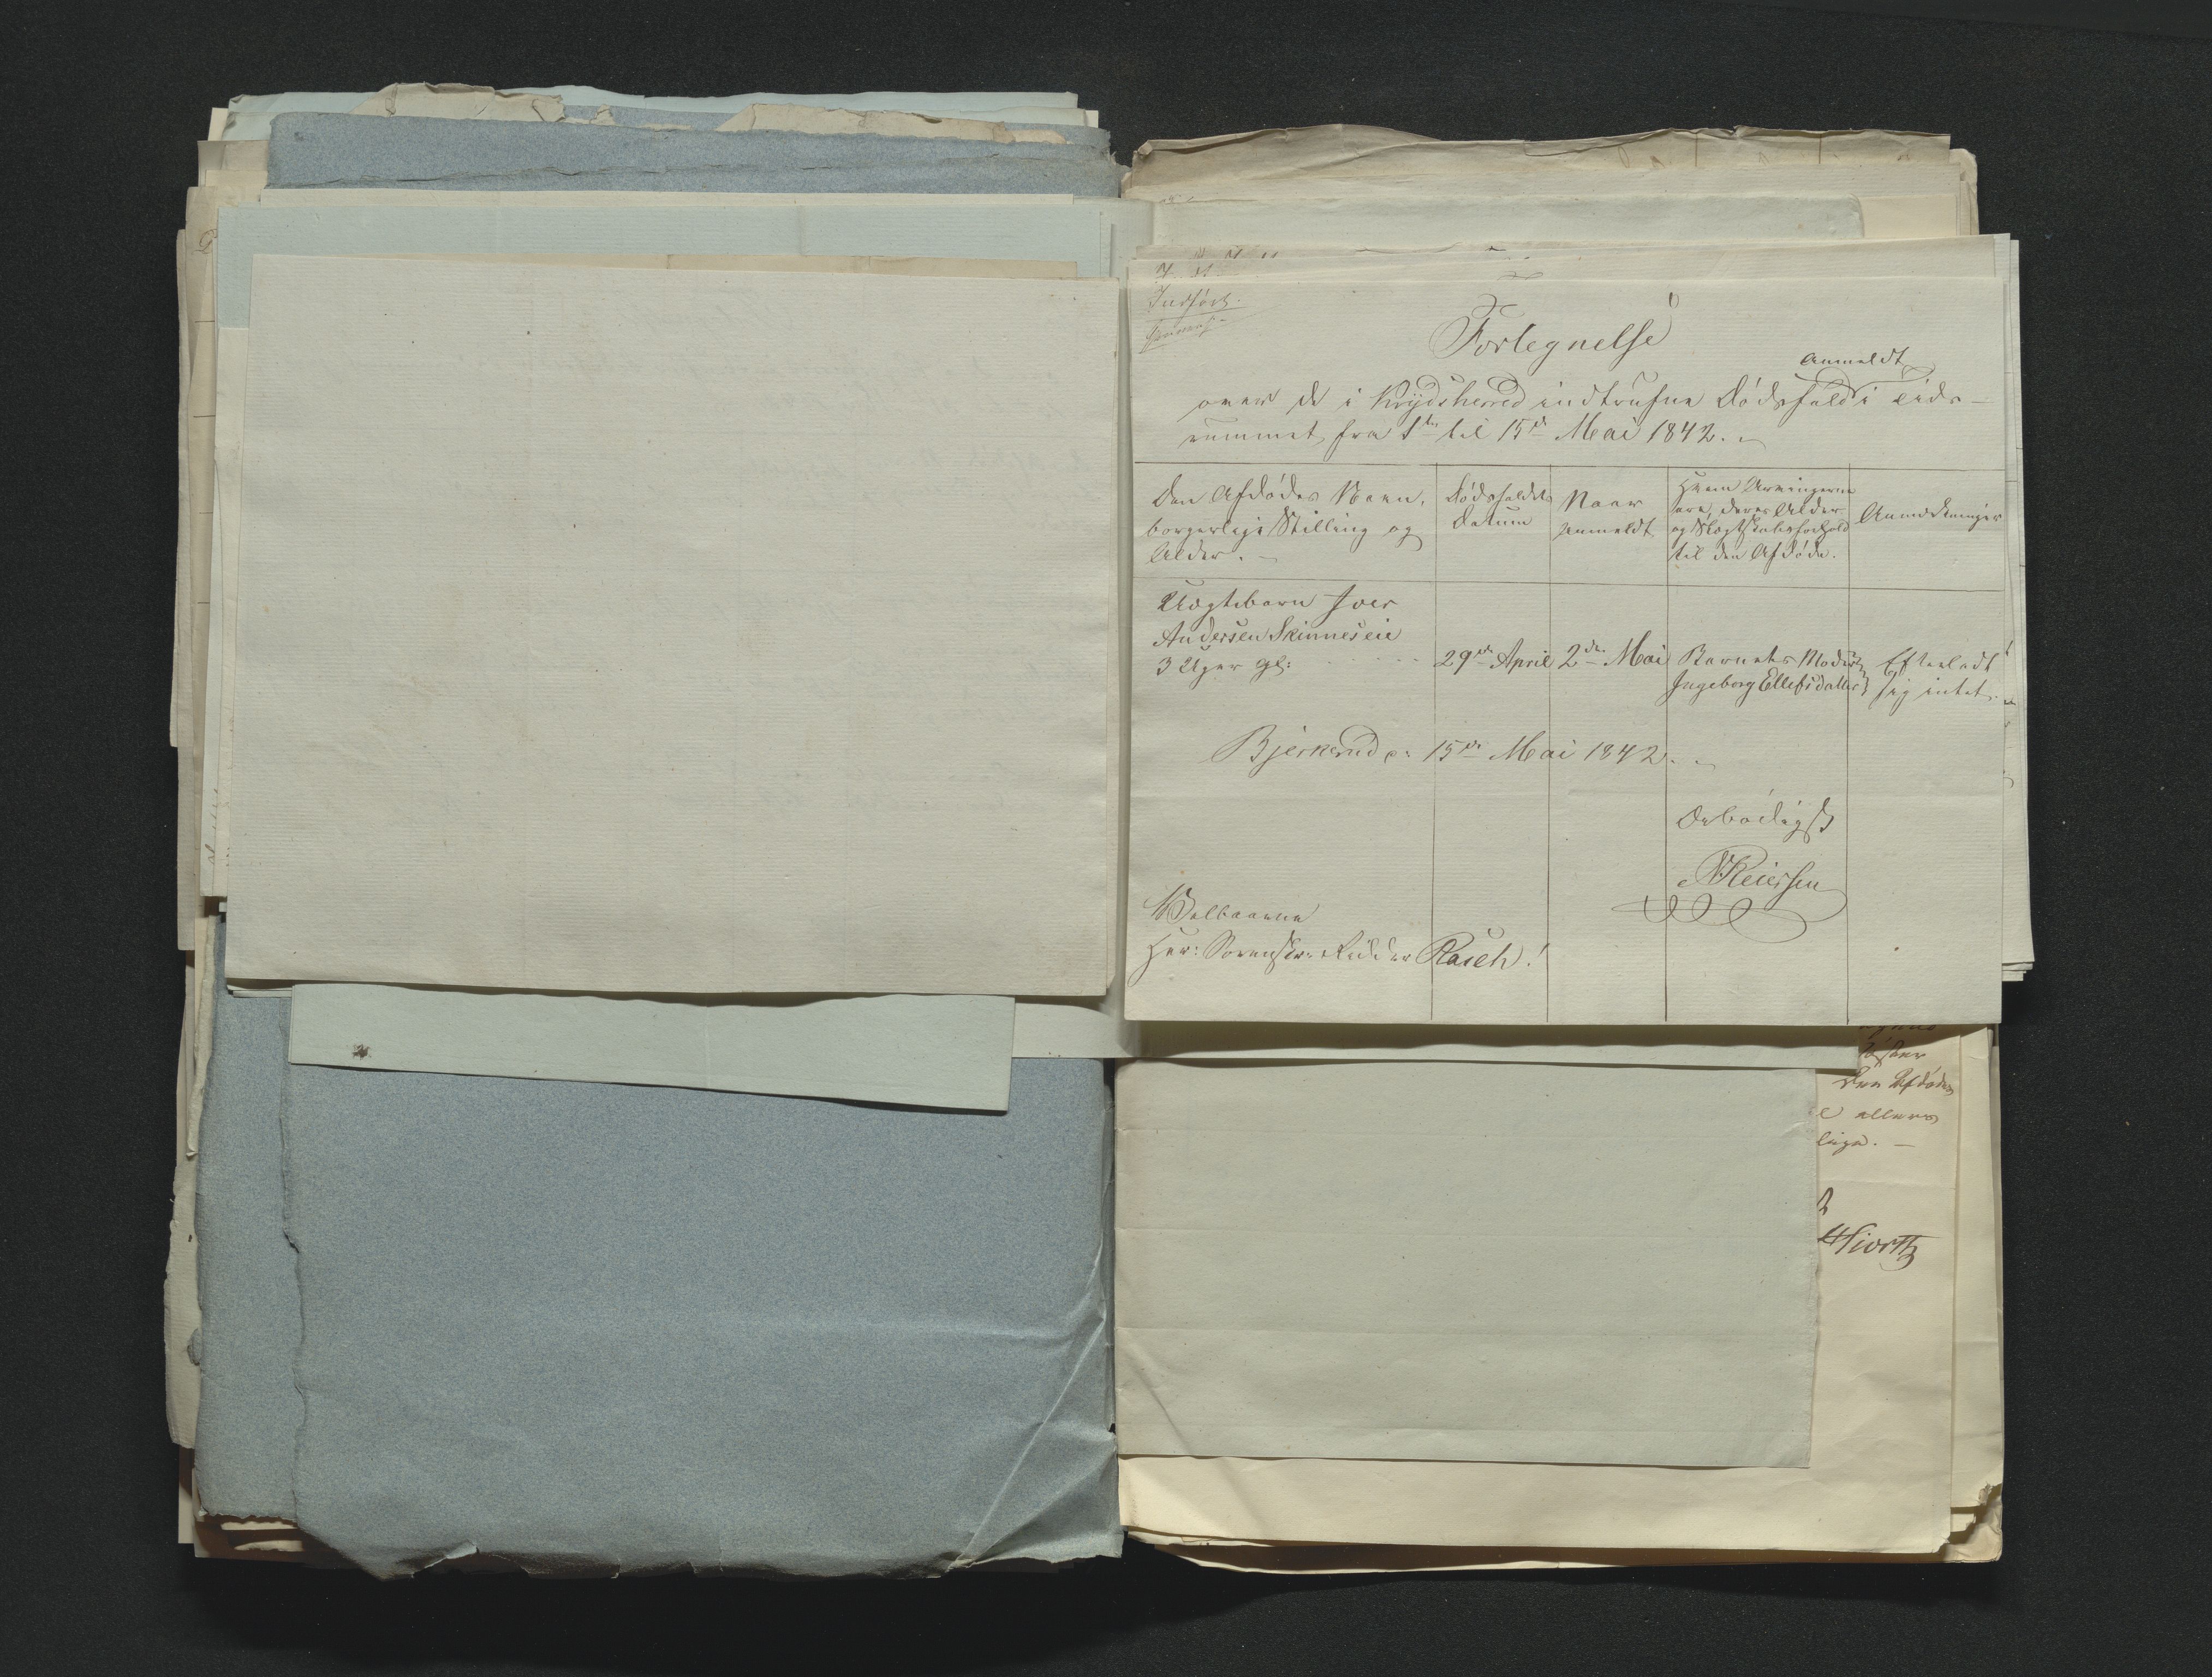 Indført.
Fortegnelse
anmeldt
over de i Krydsherred indtrufne Dødsfald i Tids-
rummet fra 1ste til 15de Mai 1842.
Den Afdødes Navn,
borgerlige Stilling og
Alder.
Dødsfaldets
Datum
Naar
anmeldt
Hvem Arvingerne
ere, deres Alder
og Slægtskabsforhold
til den Afdøde.
Anmærkninger
Uægtebarn Iver
Andersen Skinneseie
3 Uger gl:
29de April
2den Mai
Barnets Moder
Ingeborg Ellefsdatter
Efterladt
sig intet.
Bjerkerud den 15de Mai 1842.
Ærbødigst
N Reiersen
Velbaarne
Herr: Sorenskr: Ridder Rasch!
den Afdødes
ellers
lige.
Hiorth